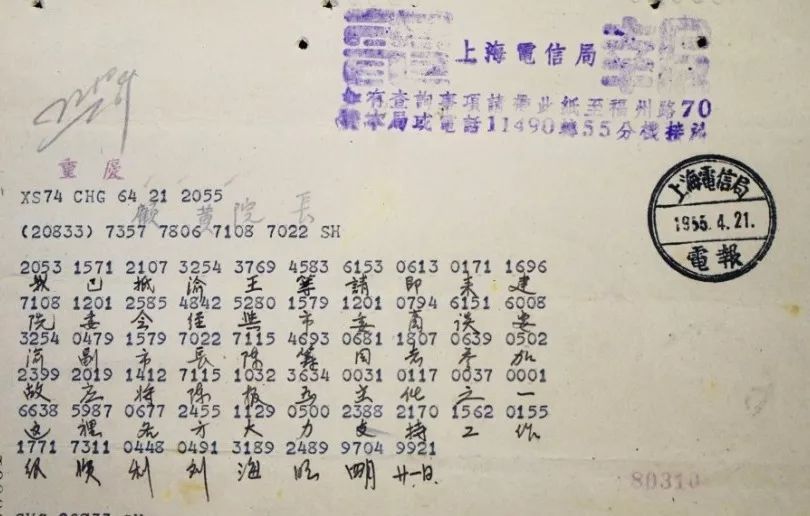 上海電信局
如有查詢事項請帶此紙至福州路70
號本局或電話11490轉55分機接洽
重慶
XS74 CHG 64 21 2055
顧黃院長
(20833) 7357 7806 7108 7022 SH
上海電信局
1955.4.21.
電報
2053 1571 2107 3254 3769 4583 6153 0613 0171 1696
我已抵渝王等請即來建
7108 1201 2585 4842 5280 1579 1201 0794 6151 6008
院委会經與市委商談安
3254 0479 1579 7022 7115 4693 0681 1807 0639 0502
渝副市長陳籌同志參加
2399 2019 1412 7115 1032 3634 0031 0117 0037 0001
故应将陳報為主任之一
6638 5987 0677 2455 1129 0500 2388 2170 1562 0155
這裡各方大力支持工作
1771 7311 0448 0491 3189 2489 9704 9921
很順利刘海旺四月廿一日
80310